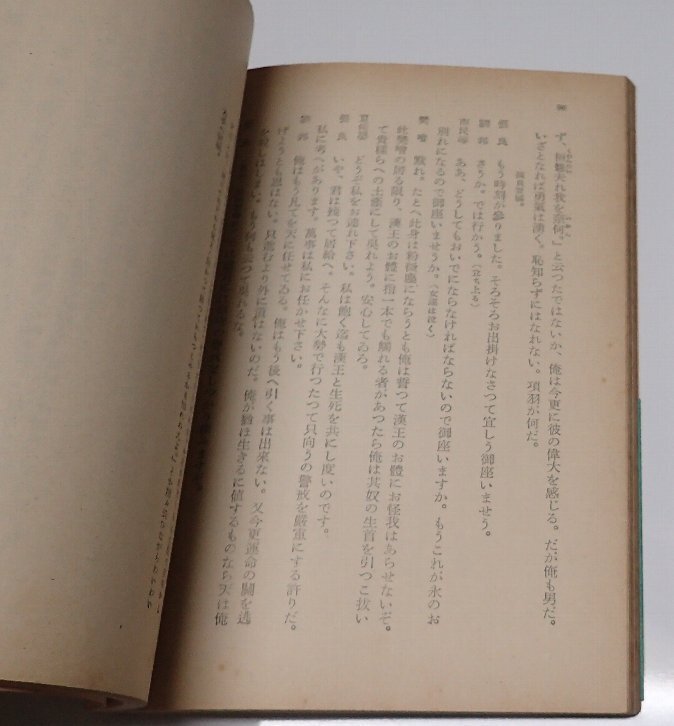 ず、桓魋夫れ我を奈何。』と云つたではないか、俺は今更に彼の偉大を感じる。だが俺も男だ。
いざとなれば勇氣は湧く。恥知らずにはなれない。項羽が何だ。
張良登場。
張良 もう時刻が參りました。そろそろお出掛けなさつて宜しう御座いませう。
劉邦 さうか。では行かう。(立ち上る)
ああ、どうしてもおいでにならなければならないので御座いますか。もうこれが永のお
別れになるので御座いませうか。(女達は泣く)
樊噲 默れ。たとへ此身は粉微塵にならうとも俺は誓つて漢王のお體にお怪我はあらせないぞ。
此樊噲の居る限り、漢王のお體に指一本でも觸れる者があつたら俺は其奴の生首を引つこ拔い
て貴樣らへの土產にして吳れよう。安心してゐろ。
夏侯嬰 どうぞ私をお連れ下さい。私は飽く迄も漢王と生死を共にし度いのです。
張良 いや、君は殘つて居給へ。そんなに大勢で行つたつて只向うの警戒を嚴重にする許りだ。
私に考へがあります。萬事は私にお任かせ下さい。
劉邦 俺はもう凡てを天に任せてゐる。俺はもう後へ引く事は出來ない。又今更運命の鬪を逃
げようとも思はない。只進むより外に道はないのだ。俺が猶ほ生きるに値するものなら天は俺